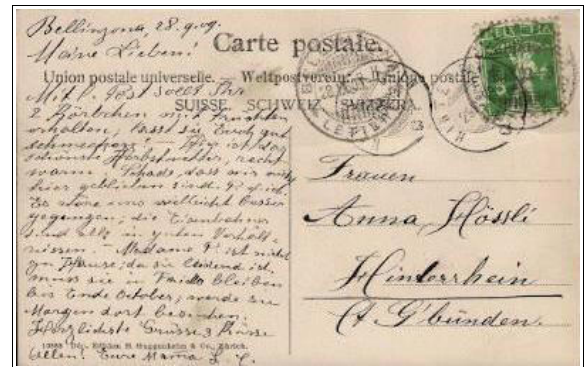 Bellinzona, 28.9.09.
Meine Lieben!
Carte postale.
Union postale universelle. — Weltpostverein. — Unione postale
SUISSE. SCHWEIZ. SVIZZERA.
Mit l. Post sollt Ihr
2 Körbchen mit Früchten
erhalten, lasst sie Euch gut
schmecken. — Hier ist das
schönste Herbstwetter, recht
warm. Schade, dass wir nicht
hier geblieben sind.
Es wäre uns vielleicht besser
gegangen, die Eisenbahner
sind alle in guten Verhält-
nissen. — Madame P. ist nicht
zu Hause; da sie leidend ist,
muss sie in Faido bleiben
bis Ende October, werde sie
Morgen dort besuchen.
Herzlichste Grüsse & Küsse
Allen! Eure Mama L. C.
Frauen
Anna Hössli
Hinterrhein
Ct. G'bünden.
BELLINZONA
LETTERE
HELVETIA
Dép. Edition H. Guggenheim & Co., Zürich.